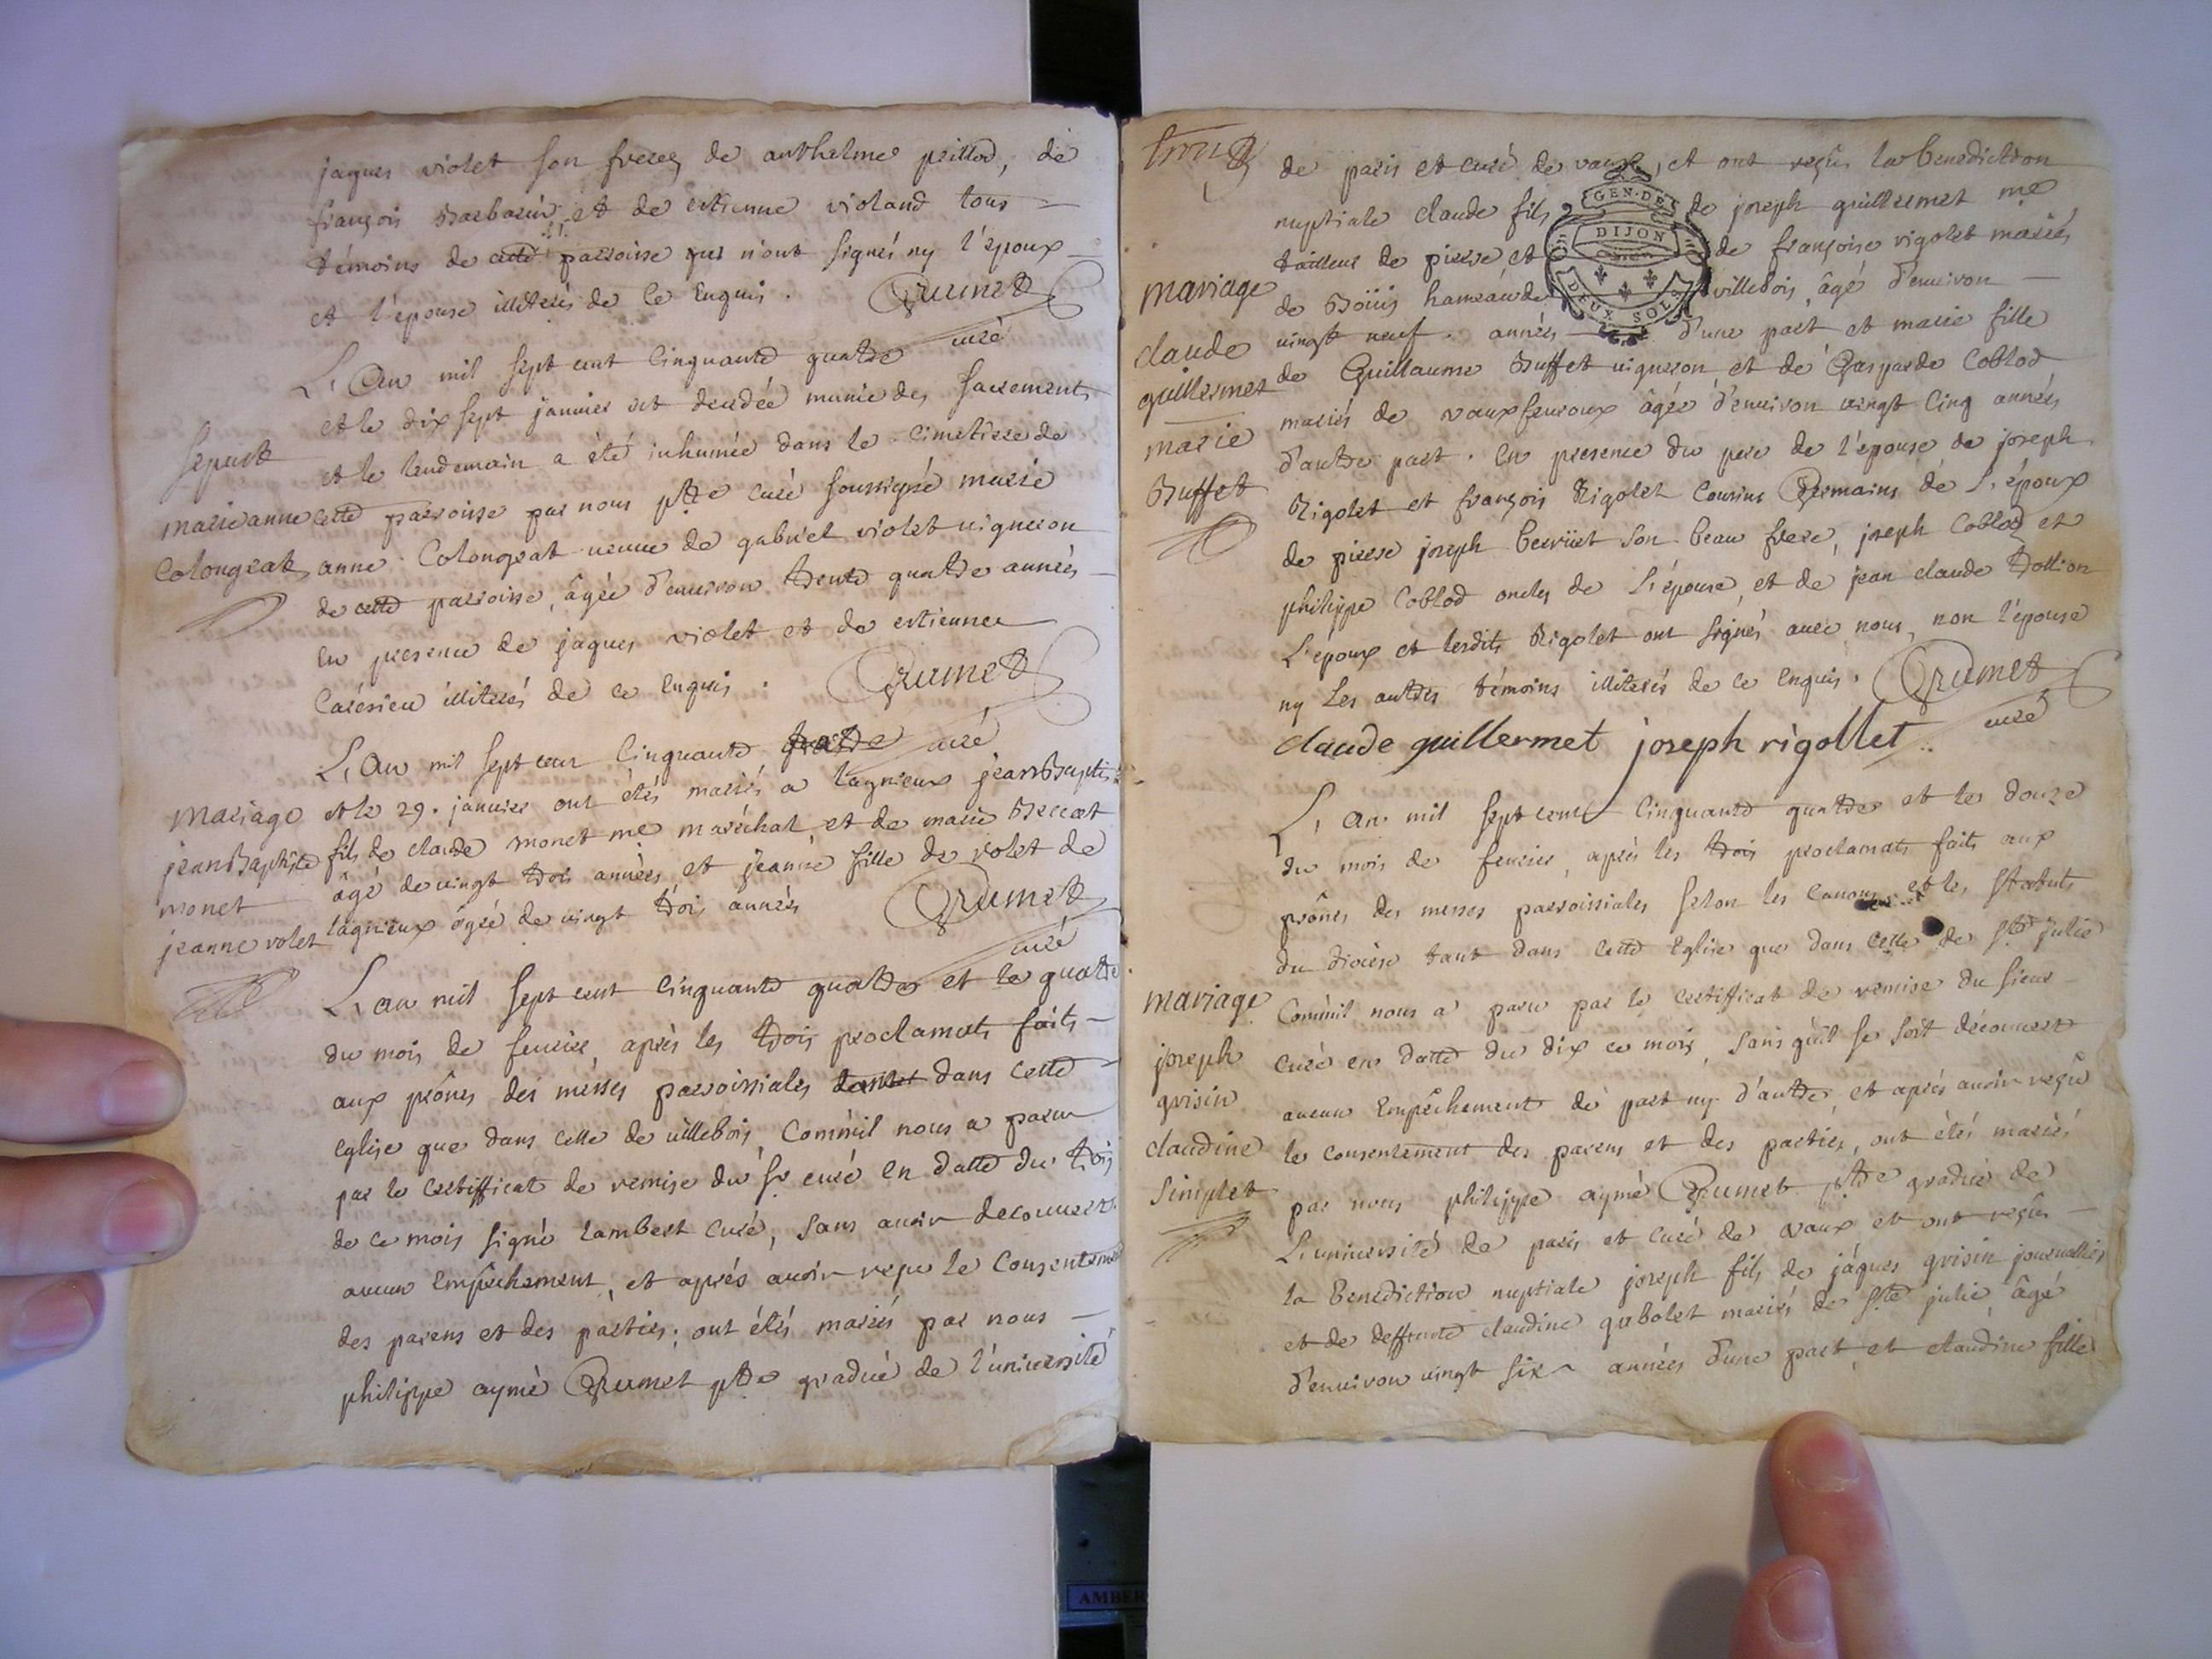 jaques violet son frere, de anthelme peillod, de
françois Barbarin et de estienne violand tous
témoins de cette parroisse qui n'ont signés ny l'époux
et l'épouse illiterés de ce Enquis. Grumet
curé
L'An mil sept cent Cinquante quatre
et le dix sept janvier est decedée munie des sacrements
et le lendemain a été inhumée dans le cimetierre de
cette parroisse par nous ptre curé soussigné marie
anne Colongeat veuve de gabriel violet vigneron
de cette parroisse, âgée d'environ trente quatre années
En presence de jaques violet et de estienne
illiterés de ce Enquis. Grumet
curé
sepult
marie anne
Colongeat
L'An mil sept cent Cinquante quatre
et le 29. janvier ont étés mariés a lagnieux jean Baptis
fils de claude monet me maréchal et de marie
âgé de vingt trois années et jeanne fille de volet de
lagnieux âgée de vingt trois années Grumet
curé
mariage
jean Baptiste
monet
jeanne volet
L'an mil sept cent Cinquante quatre et le quatre
du mois de fevrier, après les trois proclamats faits
aux prônes des messes parroissiales tant dans cette
Eglise que dans celle de villebois, Comm'il nous a paru
par le certifficat de remise du Sr curé en datte du trois
de ce mois signé Lambert curé, sans avoir decouvert
aucun Empêchement, et aprés avoir reçu le Consentement
des parens et des parties, ont étés mariés par nous
philippe aymé Grumet ptre gradué de l'université
de paris et curé de vaux, et ont reçûs la benediction
nuptiale claude fils de joseph guillermet me
tailleur de pierre et de françoise rigolet mariés
de Boüis hameau de villebois, âgé d'environ
vingt neuf années d'une part et marie fille
de Guillaume Buffet vigneron et de Gasparde Coblod
mariés de vauxfevroux âgée d'environ vingt Cinq années
d'autre part. En presence du pere de l'épouse de joseph
Rigolet et françois Rigolet Cousins Germains de L'époux
de pierre joseph son beau frere, joseph Coblod et
philippe Coblod oncles de L'épouse, et de jean claude
L'époux et lesdits Rigolet ont signés avec nous, non l'épouse
ny Les autres témoins illiterés de ce Enquis. Grumet
curé
claude guillermet joseph rigollet
mariage
claude
guillermet
marie
Buffet
GEN. DE
DIJON
DEUX SOLS
L'An mil sept cent Cinquante quatre et le douze
du mois de fevrier, après les trois proclamats faits aux
prônes des messes parroissiales selon les Canons et les statuts
du diocése tant dans cette Eglise que dans celle de Ste julie
Comm'il nous a paru par le certifficat de remise du sieur
curé en datte du dix ce mois, sans qu'il se soit découvert
aucun Empêchement de part ny d'autre, et aprés avoir reçu
le consentement des parens et des parties, ont étés mariés
par nous philippe aymé Grumet ptre gradué de
L'université de paris et curé de vaux et ont reçûs
la benediction nuptiale joseph fils de jâques grisin journallier
et de deffunte claudine gabolet mariés de Ste julie âgé
d'environ vingt six années d'une part et claudine fille
mariage
joseph
grisin
claudine
Simplet
AMBER